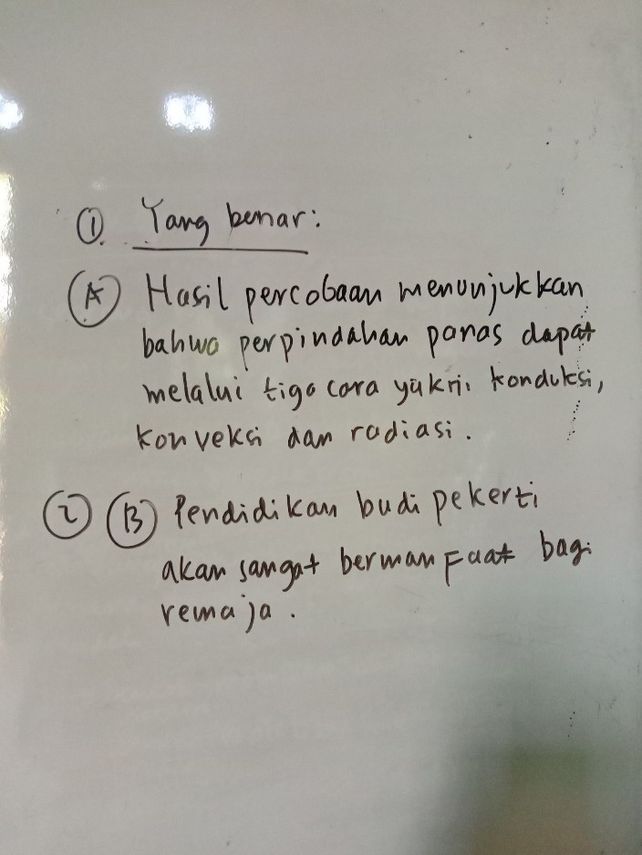 ① Yang benar:
Ⓐ Hasil percobaan menunjukkan
bahwa perpindahan panas dapat
melalui tiga cara yakni konduksi,
konveksi dan radiasi.
② Ⓑ Pendidikan budi pekerti
akan sangat bermanfaat bagi
remaja.